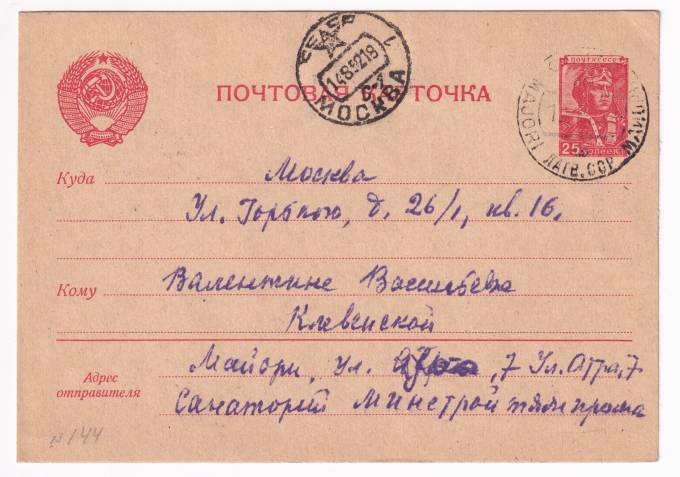 ПОЧТОВАЯ КАРТОЧКА
ПОЧТА СССР
25 копеек
MAJORI ЛАТВ. ССР МАЙОРИ
14 8 52 18
МОСКВА
Куда
Москва
Ул. Горького, д. 26/1, кв. 16.
Кому
Валентине Васильевне
Клевенской
Адрес отправителя
Майори, ул. 7 Ул. Отра, 7
Санаторий Минстройтяжпрома
N144